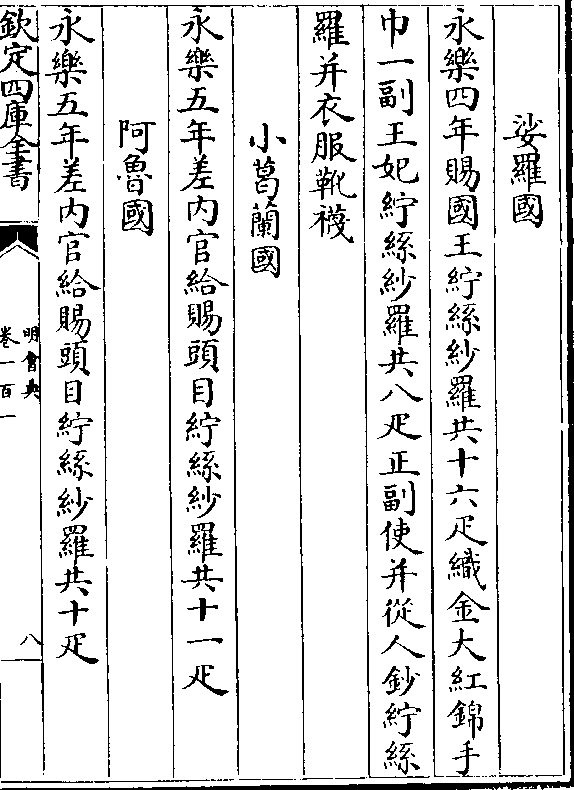 娑羅國
永樂四年賜國王紵絲紗羅共十六疋織金大紅錦手
巾一副王妃紵絲紗羅共八疋正副使并從人鈔紵絲
羅并衣服靴襪
小葛蘭國
永樂五年差内官給賜頭目紵絲紗羅共十一疋
阿魯國
永樂五年差内官給賜頭目紵絲紗羅共十疋
欽定四庫全書
明會典
卷一百一
八